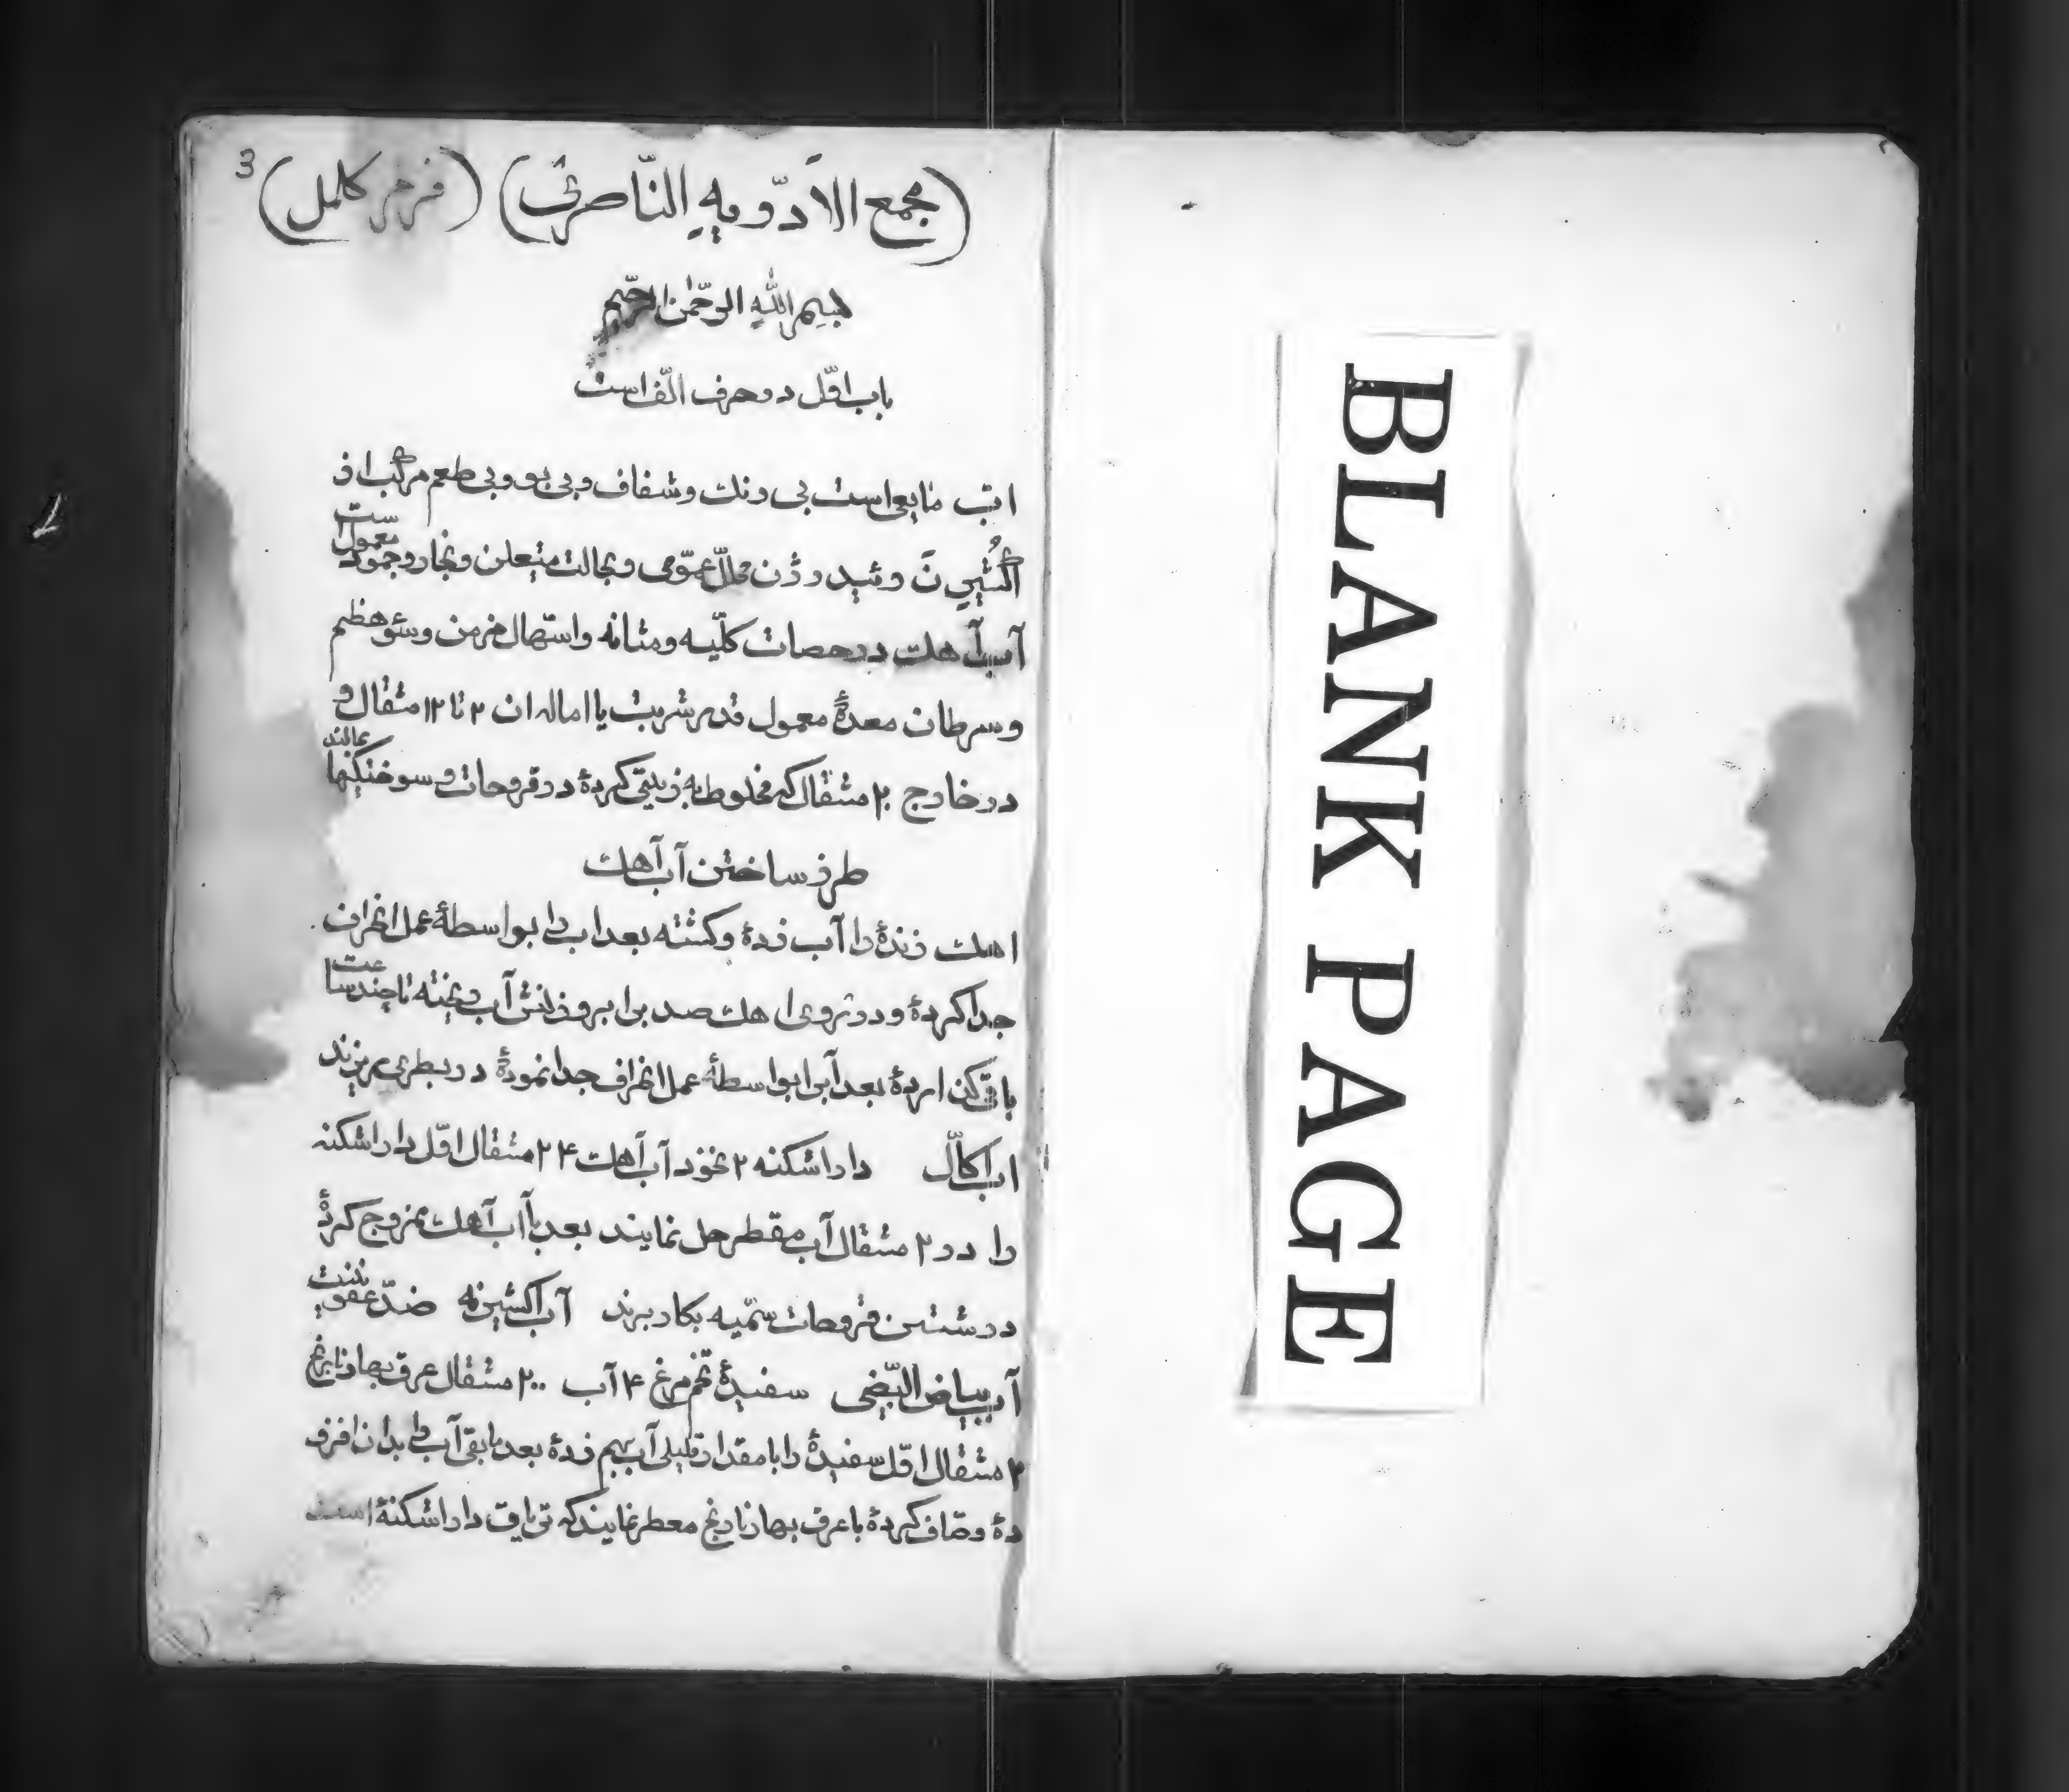 3
(مجمع الأدّویهِ النّاصری) (کامل)
بسم الله الرّحمن الرّحیم
باب اوّل در حرف الف است
اب مایعی است بی رنك و شفاف و بی بو و بی طعم مرکّب از
اکسُیژِن و ئیدرژن محلّل عمّومی و بحالت و بخار و جمود معمول ست
آب آهك در حصات کلّیه و مثانه و اسهال مزمن و سئو هظم
و سرطان معدهٔ معمول قدر شربت یا اماله ان ۳ تا ۱۲ مثقال و
در خارج ۲۰ مثقال که مخلوط به زیتی کردهٔ در قروحات و سوختکیها بمالند
طرز ساختن آب آهك
اهك زندهٔ را آب زدهٔ و کشته بعد اب را بواسطهٔ عمل انحراف
جدا کردهٔ و در روی اهك صد برابر وزنش آب ریخته تا چند ساعت
باقی کذاردهٔ بعد آبرا بواسطهٔ عمل انحراف جدا نمودهٔ در بطری بریزند
اب اکّال داراشکنه ۲ نخود آب آهك ۲۴ مثقال اوّل داراشکنه
را در ۲ مثقال آب مقطر حل نمایند بعد با آب آهك ممزوج کردهٔ
در شستن قروحات سمّیه بکار برند آب اکسیژنه ضدّ عفونت
آب بیاض البّیضی سفیدهٔ تخم مرغ ۴ آب ۲۰۰ مثقال عرق بهار نارنج
۲ مثقال اوّل سفیدهٔ را با مقدار قلیلی آب بهم زدهٔ بعد مابقی آب را بدان افزو
دهٔ و صاف کردهٔ با عرق بهار نارنج معطر نمایند که تریاق داراشکنهٔ است
BLANK PAGE